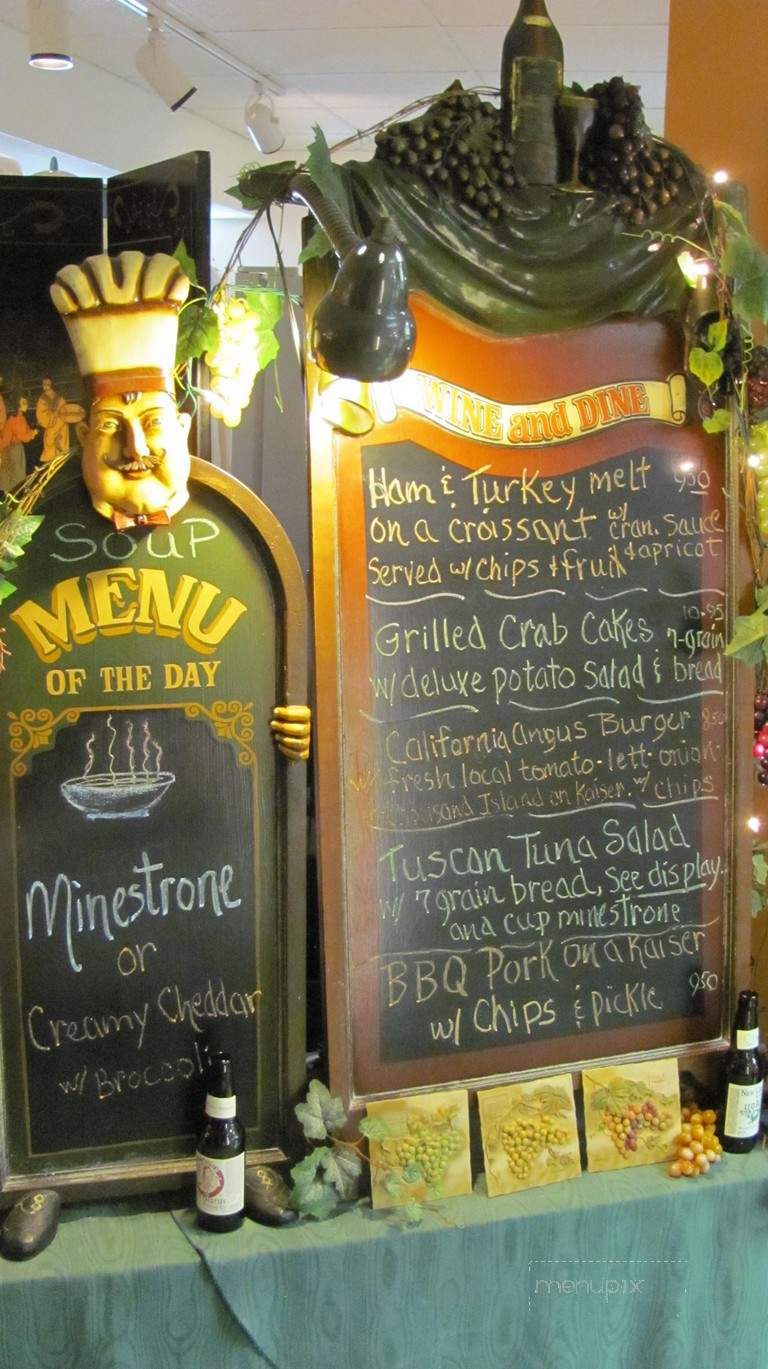 SOUP
MENU
OF THE DAY
Minestrone
or
Creamy Cheddar
w/ Broccoli
WINE and DINE
Ham & Turkey melt 9.50
on a croissant w/ cran. sauce
served w/ chips & fruit & apricot
Grilled Crab Cakes 10.95
w/ deluxe potato salad & 7-grain bread
California Angus Burger 8.50
w/ fresh local tomato-lett-onion-
thousand Island on Kaiser w/ chips
Tuscan Tuna Salad
w/ 7 grain bread, see display..
and cup minestrone
BBQ Pork on a Kaiser
w/ Chips & pickle 9.50
menupix